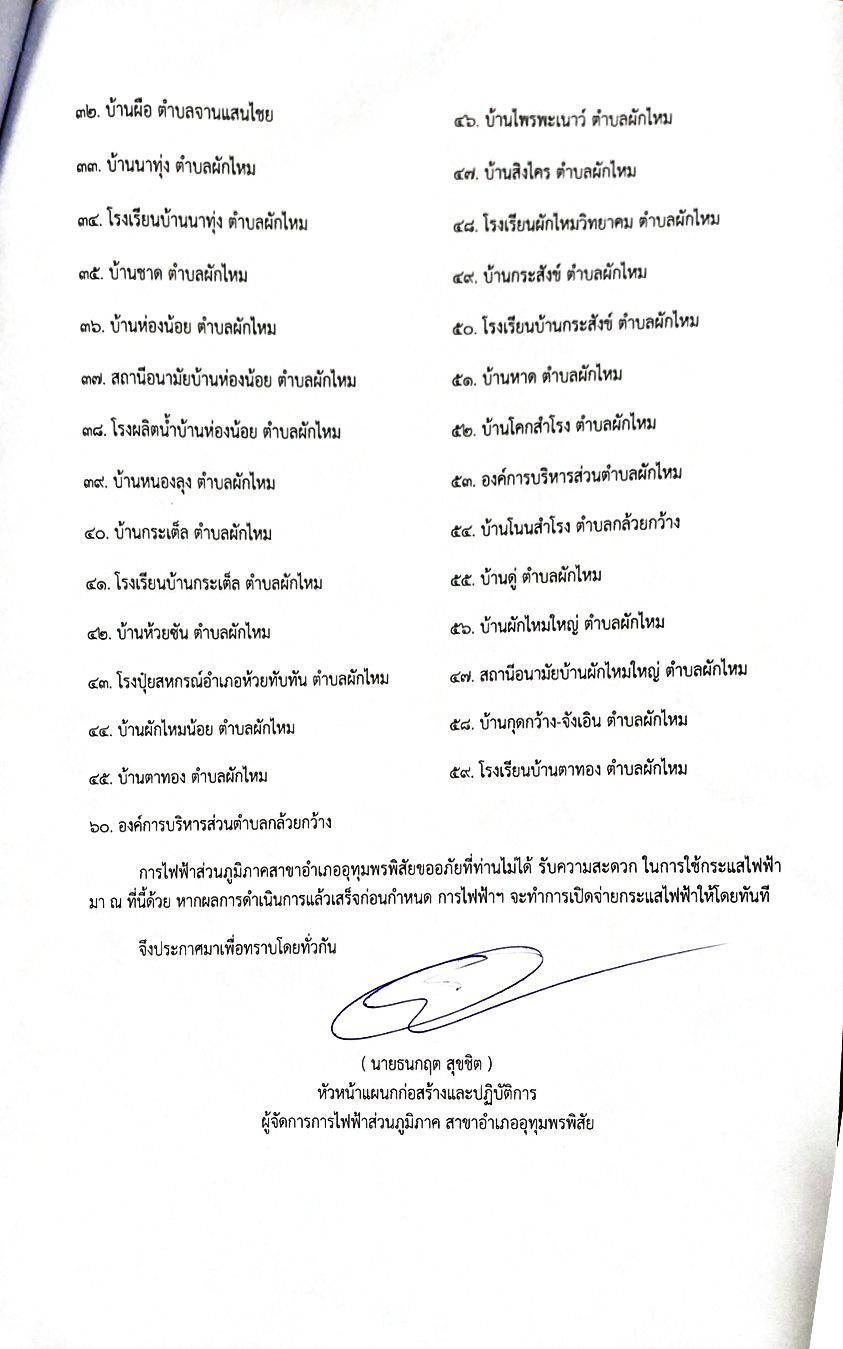 ๓๒. บ้านผือ ตำบลจานแสนไชย
๓๓. บ้านนาทุ่ง ตำบลผักไหม
๓๔. โรงเรียนบ้านนาทุ่ง ตำบลผักไหม
๓๕. บ้านชาด ตำบลผักไหม
๓๖. บ้านห่องน้อย ตำบลผักไหม
๓๗. สถานีอนามัยบ้านห่องน้อย ตำบลผักไหม
๓๘. โรงผลิตน้ำบ้านห่องน้อย ตำบลผักไหม
๓๙. บ้านหนองลุง ตำบลผักไหม
๔๐. บ้านกระเต็ล ตำบลผักไหม
๔๑. โรงเรียนบ้านกระเต็ล ตำบลผักไหม
๔๒. บ้านห้วยชัน ตำบลผักไหม
๔๓. โรงปุ๋ยสหกรณ์อำเภอห้วยทับทัน ตำบลผักไหม
๔๔. บ้านผักไหมน้อย ตำบลผักไหม
๔๕. บ้านตาทอง ตำบลผักไหม
๖๐. องค์การบริหารส่วนตำบลกล้วยกว้าง
๔๖. บ้านไพรพะเนาว์ ตำบลผักไหม
๔๗. บ้านสิงไคร ตำบลผักไหม
๔๘. โรงเรียนผักไหมวิทยาคม ตำบลผักไหม
๔๙. บ้านกระสังข์ ตำบลผักไหม
๕๐. โรงเรียนบ้านกระสังข์ ตำบลผักไหม
๕๑. บ้านหาด ตำบลผักไหม
๕๒. บ้านโคกสำโรง ตำบลผักไหม
๕๓. องค์การบริหารส่วนตำบลผักไหม
๕๔. บ้านโนนสำโรง ตำบลกล้วยกว้าง
๕๕. บ้านดู่ ตำบลผักไหม
๕๖. บ้านผักไหมใหญ่ ตำบลผักไหม
๔๗. สถานีอนามัยบ้านผักไหมใหญ่ ตำบลผักไหม
๕๘. บ้านกุดกว้าง-จังเอิน ตำบลผักไหม
๕๙. โรงเรียนบ้านตาทอง ตำบลผักไหม
การไฟฟ้าส่วนภูมิภาคสาขาอำเภออุทุมพรพิสัยขออภัยที่ท่านไม่ได้ รับความสะดวก ในการใช้กระแสไฟฟ้า
มา ณ ที่นี้ด้วย หากผลการดำเนินการแล้วเสร็จก่อนกำหนด การไฟฟ้าฯ จะทำการเปิดจ่ายกระแสไฟฟ้าให้โดยทันที
จึงประกาศมาเพื่อทราบโดยทั่วกัน
( นายธนกฤต สุขชิต )
หัวหน้าแผนกก่อสร้างและปฏิบัติการ
ผู้จัดการการไฟฟ้าส่วนภูมิภาค สาขาอำเภออุทุมพรพิสัย